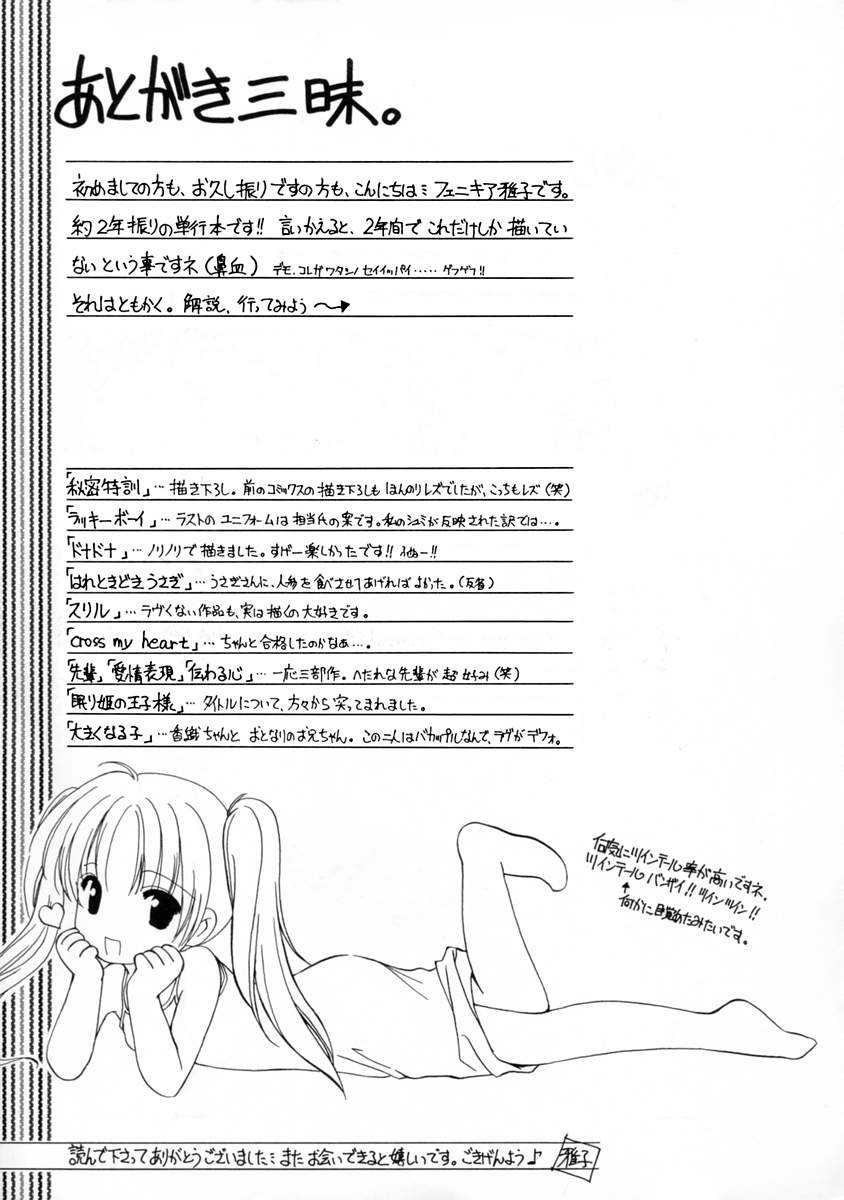 あとがき三昧。
初めましての方も、お久し振りですの方も、こんにちは フェニキア雅子です。
約2年振りの単行本です!! 言いかえると、2年間で これだけしか 描いてい
ないという事ですネ(鼻血) デモ、コレガワタシノセイイッパイ……ゲフゲフ!!
それはともかく。解説、行ってみよう〜→
「秘密特訓」…描き下ろし。前のコミックスの描き下ろしも ほんのりレズでしたが、こっちもレズ(笑)
「ラッキーボーイ」…ラストの ユニフォームは 担当氏の案です。私のシュミが反映された訳では…。
「ドナドナ」…ノリノリで描きました。すげー楽しかったです!! ふぬー!!
「はれときどきうさぎ」…うさぎさんに、人参を食べさせてあげればよかった。(反省)
「スリル」…ラヴくない作品も、実は描くの大好きです。
「cross my heart」…ちゃんと合格したのかなぁ…。
「先輩」「愛情表現」「伝わる心」…一応三部作。へたれな先輩が超好み(笑)
「眠り姫の王子様」…タイトルについて、方々から突っこまれました。
「大きくなる子」…香織ちゃんと おとなりのお兄ちゃん。この二人はバカップルなんで、ラヴがデフォ。
何気にツインテール率が高いですネ。
ツインテール バンザイ!! ツインツイン!!
↑
何かに目覚めたみたいです。
読んで下さってありがとうございました また お会いできると嬉しいです。ごきげんよう♪ 雅子